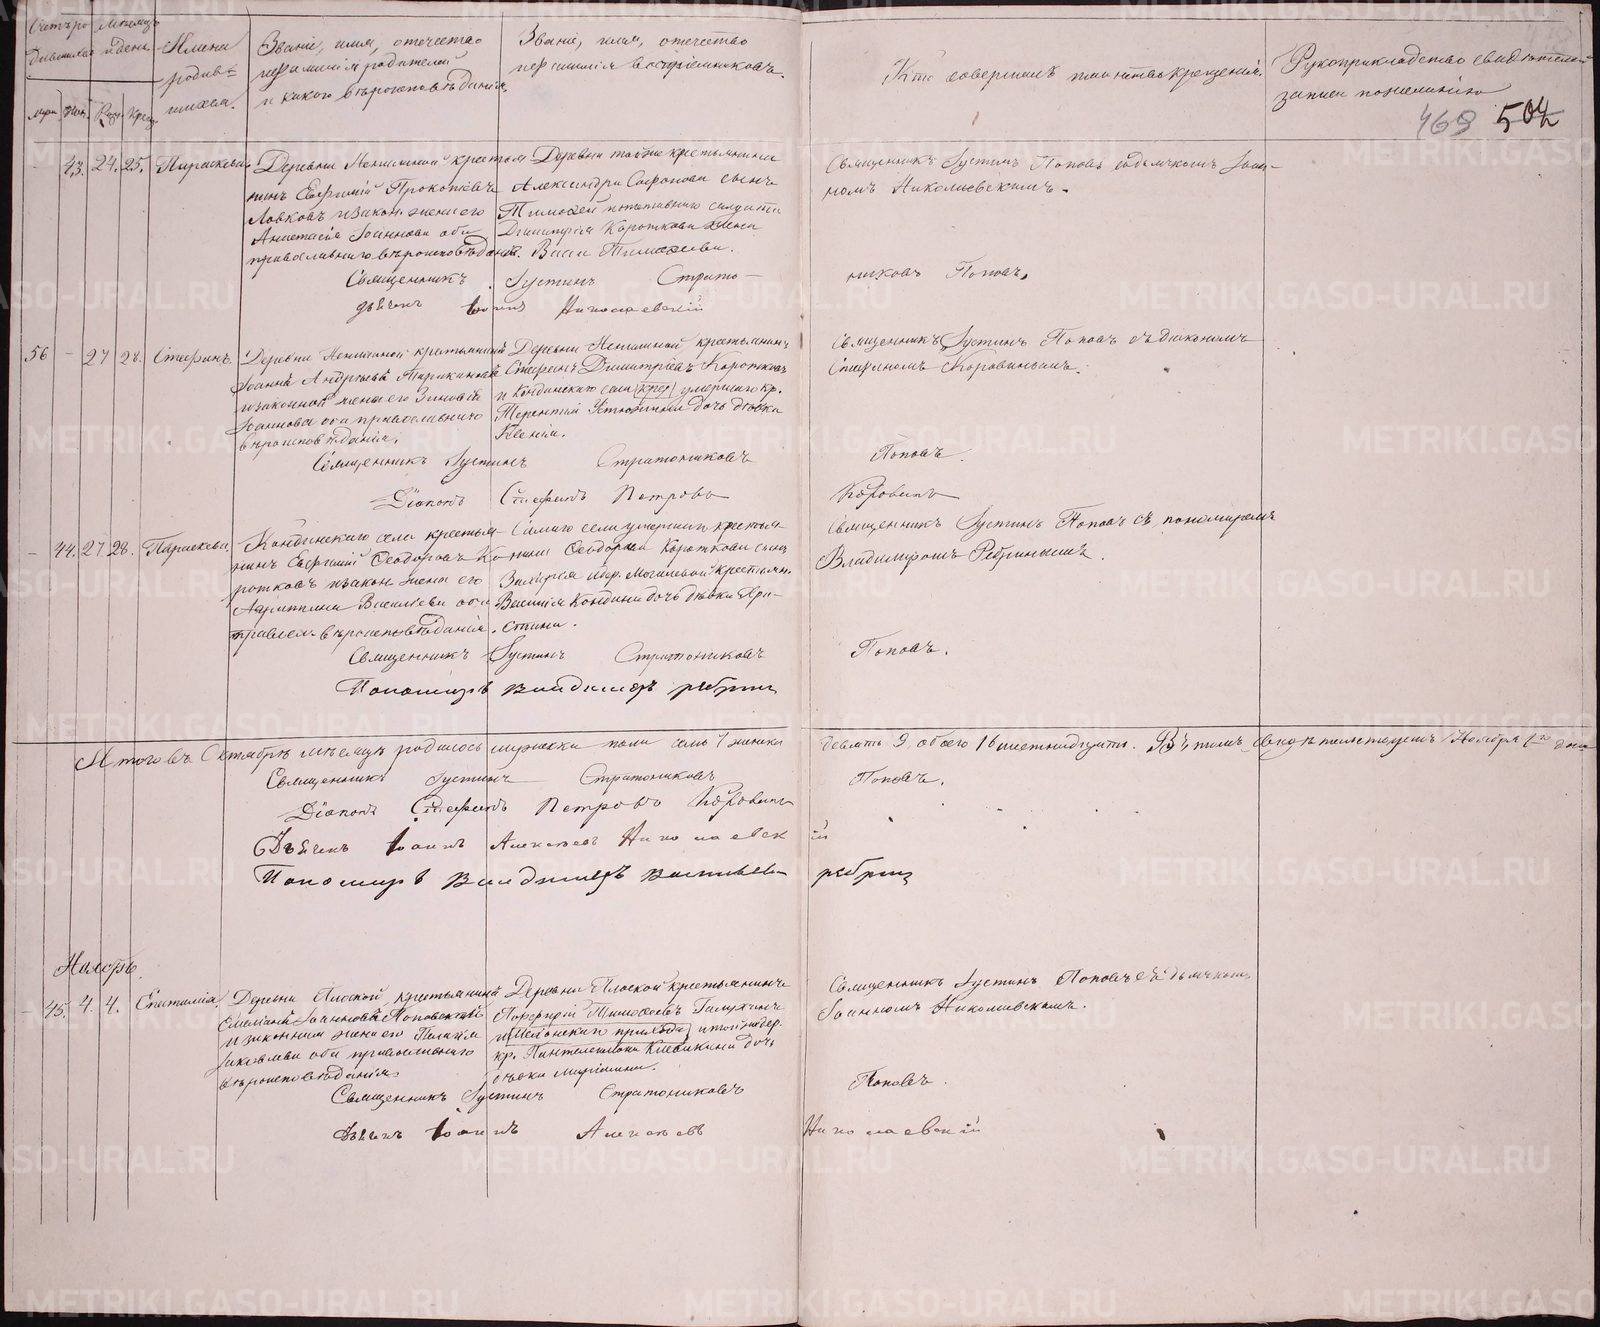 Счетъ ро Мѣсяцъ
дившихся и день
муж. жен. Рож. Крещ.
Имена
родив=
шихся.
Званіе, имя, отечество
и фамилія родителей
и какого вѣроисповѣданія.
Званіе, имя, отечество
и фамилія воспріемниковъ.
Кто совершилъ таинство крещенія.
Рукоприкладство свидѣтелей
записи по желанію
469 504
43. 24. 25. Параскева
Деревни крестья
нинъ Евфимій Прокопіевъ
Ловковъ и закон. жена его
Анастасія Іоаннова оба
православнаго вѣроисповѣданія.
Деревни тойже крестьянина
Александра Софонова сынъ
Тимофей и отставнаго солдата
Димитрія Короткова жена
Васса Тимофеева.
Священникъ Іустинъ Поповъ съ дьячкомъ Іоан-
номъ Николаевскимъ.
Священникъ Іустинъ Страто-
никовъ Поповъ.
дьячекъ Іоаннъ Николаевскій
56 - 27 28. Стефанъ.
Деревни крестьянинъ
Іоаннъ Андреевъ
и законная жена его Зиновія
Іоаннова оба православнаго
вѣроисповѣданія.
Деревни крестьянинъ
Стефанъ Димитріевъ Коротковъ
и Кондинскаго села (крес) умершаго кр.
Терентія Устюжанина дочь дѣвка
Ксенія.
Священникъ Іустинъ Поповъ съ діакономъ
Стефаномъ Коровинымъ.
Священникъ Іустинъ Стратониковъ Поповъ.
Діаконъ Стефанъ Петровъ Коровинъ
- 44. 27 28. Параскева.
Кондинскаго села крестья
нинъ Евфимій Феодоровъ Ко
ротковъ и закон. жена его
Васильева оба
правосл. вѣроисповѣданія.
Самаго села умершаго крестья
нина Феодора Короткова сынъ
Валерій и дер. Могилевой крестьян.
Василія Кондина дочь дѣвка Хри-
стина.
Священникъ Іустинъ Поповъ съ пономаремъ
Владимиромъ Ребринымъ.
Священникъ Іустинъ Стратониковъ Поповъ.
Пономарь Владимеръ ребринъ
Итого въ Октябрѣ мѣсяцѣ родилось мужеска пола семь 7 женска девять 9 обоего 16 шестнадцать. Въ томъ свидѣтельствуемъ Ноября 1го дня
Священникъ Іустинъ Стратониковъ Поповъ.
Діаконъ Стефанъ Петровъ Коровинъ
Дьячекъ Іоаннъ Алексѣевъ Николаевскій
Пономарь Владимеръ Васильевъ ребринъ
Ноябрь.
- 45. 4. 4. Епистимія.
Деревни Плоской крестьянинъ
Емеліанъ Іоанновъ
и законная жена его Пелагія
Іаковлева оба православнаго
вѣроисповѣданія
Деревни Плоской крестьянинъ
Порфирій Тимофеевъ
и прихода и тойже дер.
кр. Пантелеимона дочь
дѣвка
Священникъ Іустинъ Поповъ съ дьячкомъ
Іоанномъ Николаевскимъ.
Священникъ Іустинъ Стратониковъ Поповъ.
Дьячекъ Іоаннъ Алексѣевъ Николаевскій
METRIKI.GASO-URAL.RU